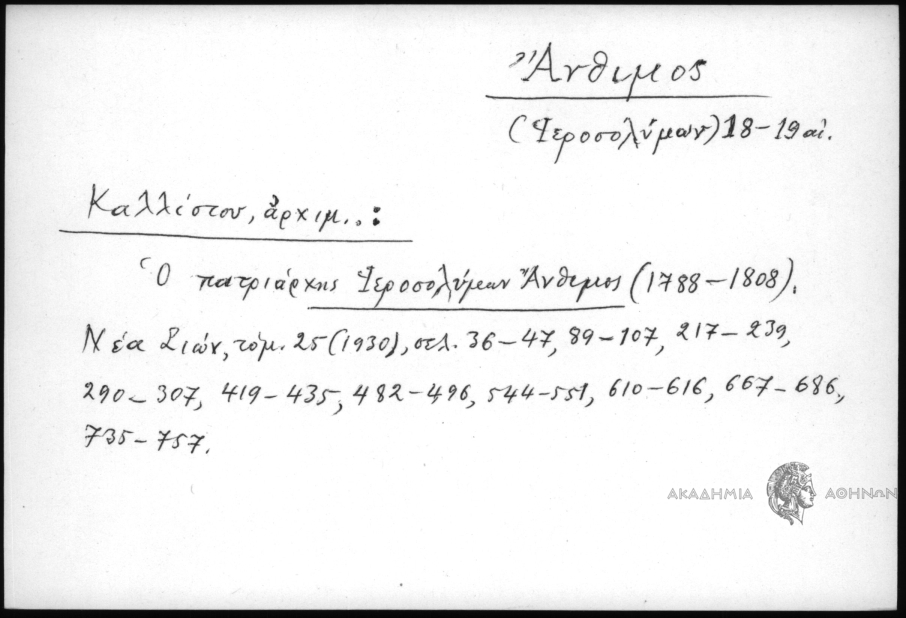 Ἄνθιμος
(Ἱεροσολύμων) 18-19 αἰ.
Καλλίστου, ἀρχιμ..:
Ὁ πατριάρχης Ἱεροσολύμων Ἄνθιμος (1788-1808).
Νέα Σιών, τόμ. 25 (1930), σελ. 36-47, 89-107, 217-239,
290-307, 419-435, 482-496, 544-551, 610-616, 667-686,
735-757.
ΑΚΑΔΗΜΙΑ ΑΘΗΝΩΝ